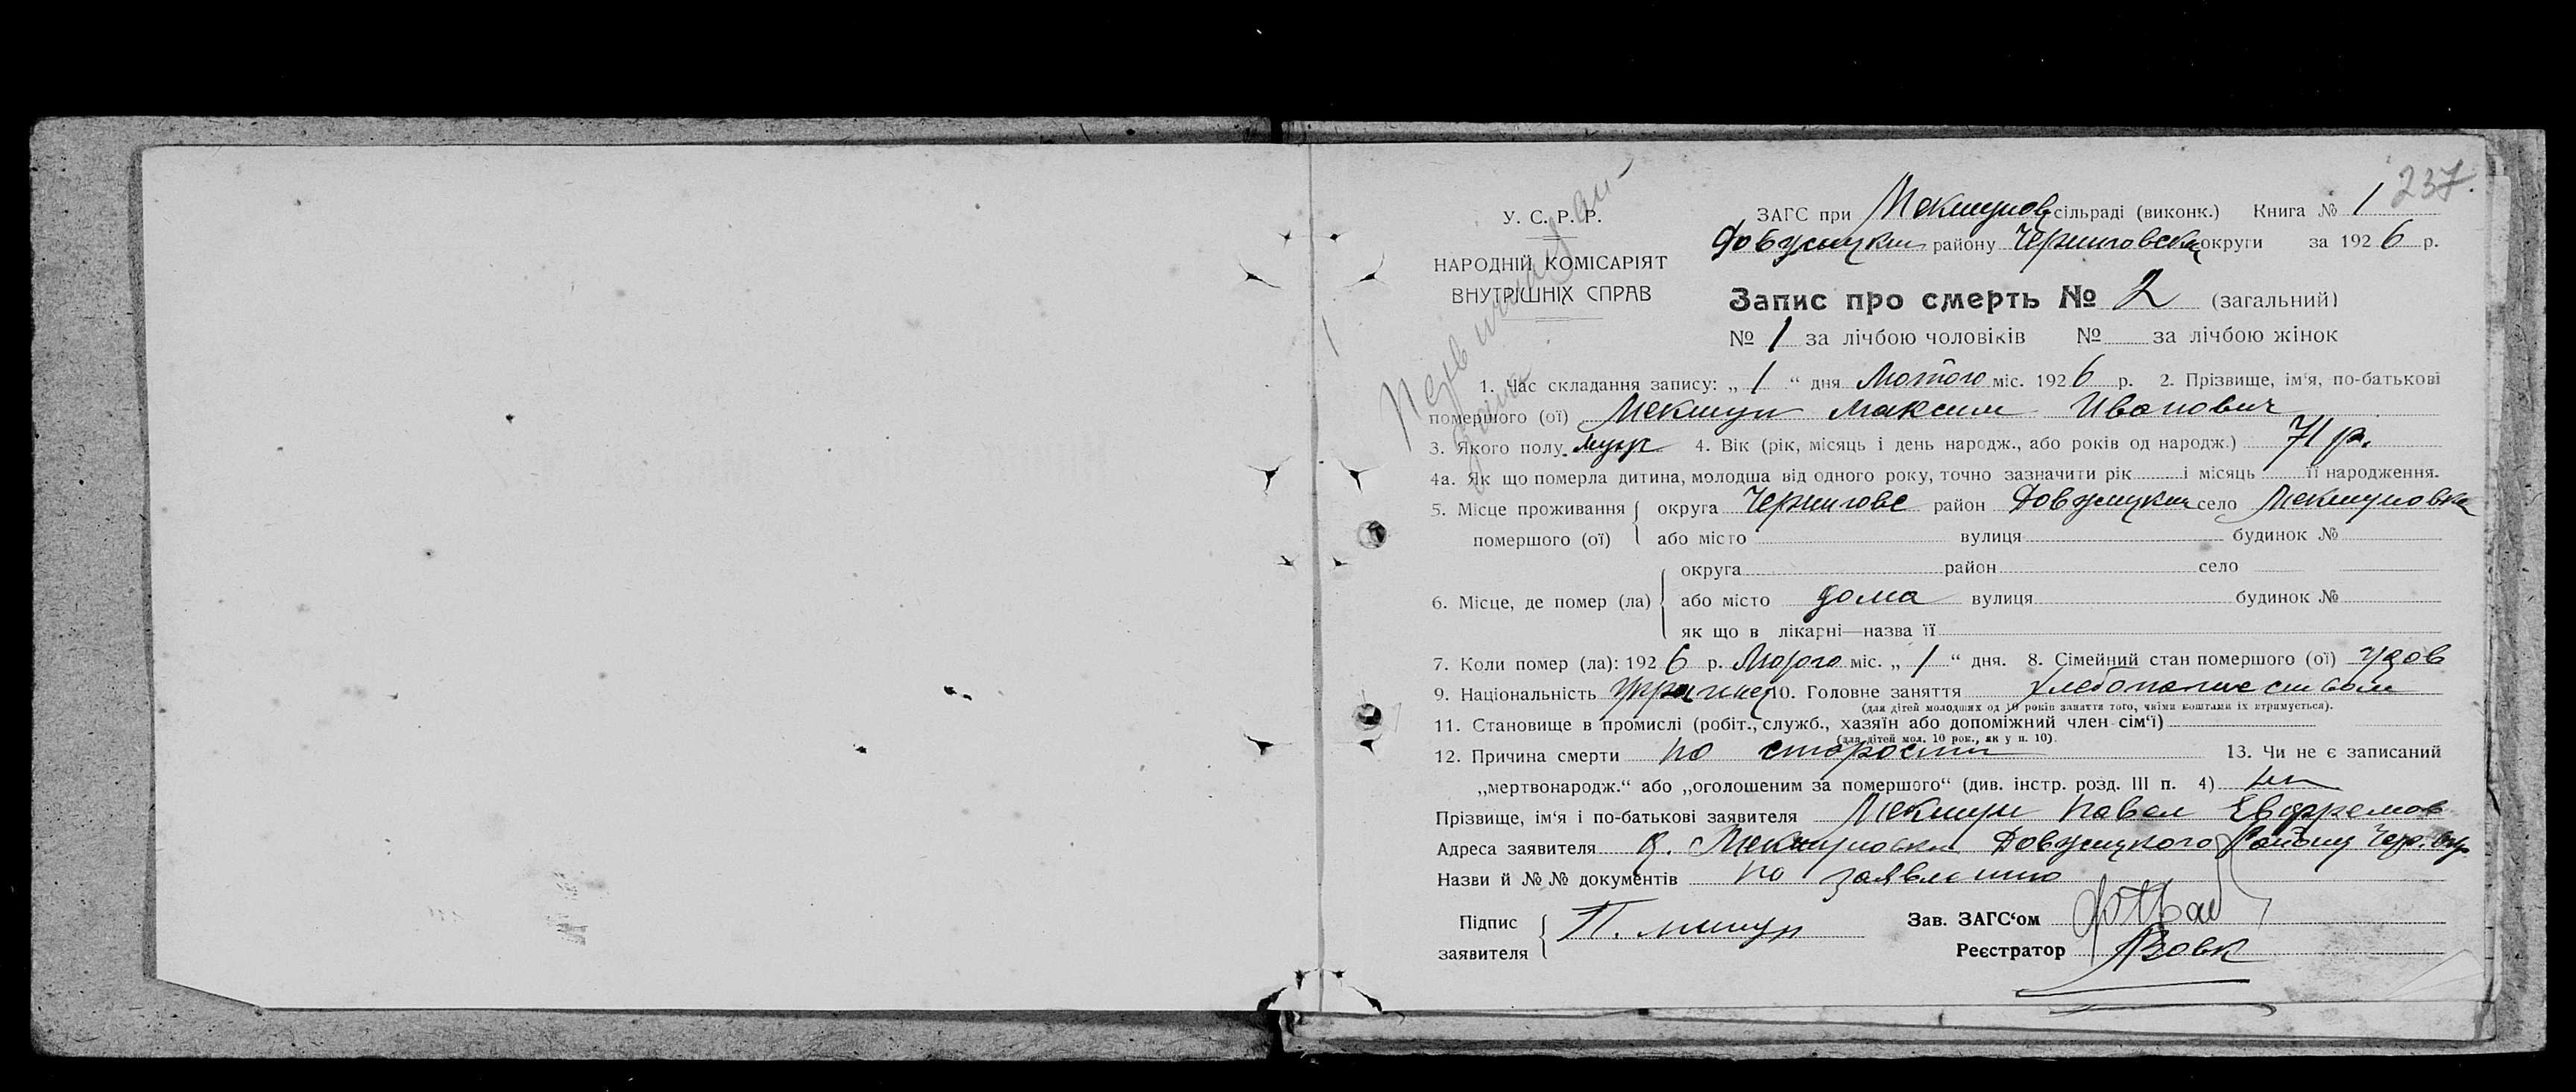 237.
У. С. Р. Р.
НАРОДНІЙ КОМІСАРІЯТ
ВНУТРІШНІХ СПРАВ
ЗАГС при Мекшуновс сільраді (виконк.) Книга № 1
Довжицким району Черниговськ округи за 1926 р.
Запис про смерть № 2 (загальний)
№ 1 за лічбою чоловіків № за лічбою жінок
1. Час складання запису: „ 1 “ дня Лютого міс. 1926 р. 2. Прізвище, ім‘я, по-батькові
помершого (ої) Мекшун Максим Иванович
3. Якого полу муж 4. Вік (рік, місяць і день народж., або років од народж.) 71 р.
4а. Як що померла дитина, молодша від одного року, точно зазначити рік і місяць її народження.
5. Місце проживання помершого (ої) округа Чернигове район Довжицким село Мекшуновка
або місто вулиця будинок №
6. Місце, де помер (ла) округа район село
або місто дома вулиця будинок №
як що в лікарні—назва її
7. Коли помер (ла): 1926 р. Лютого міс. „ 1 “ дня. 8. Сімейний стан помершого (ої) удов
9. Національність Украинец 10. Головне заняття хлебопашеством
(для дітей молодших од 10 років заняття того, чиїми коштами їх втримується).
11. Становище в промислі (робіт., служб., хазяїн або допоміжний член сім‘ї)
(для дітей мол. 10 рок., як у п. 10).
12. Причина смерти по старости 13. Чи не є записаний
„мертвонародж.“ або „оголошеним за помершого“ (див. інстр. розд. III п. 4)
Прізвище, ім‘я і по-батькові заявителя Мекшун Павел Евфремов
Адреса заявителя Мекшуновка Довжицкого Району Чер. Окр.
Назви й №№ документів по заявлению
Підпис заявителя П.
Зав. ЗАГС‘ом
Реєстратор Вовк